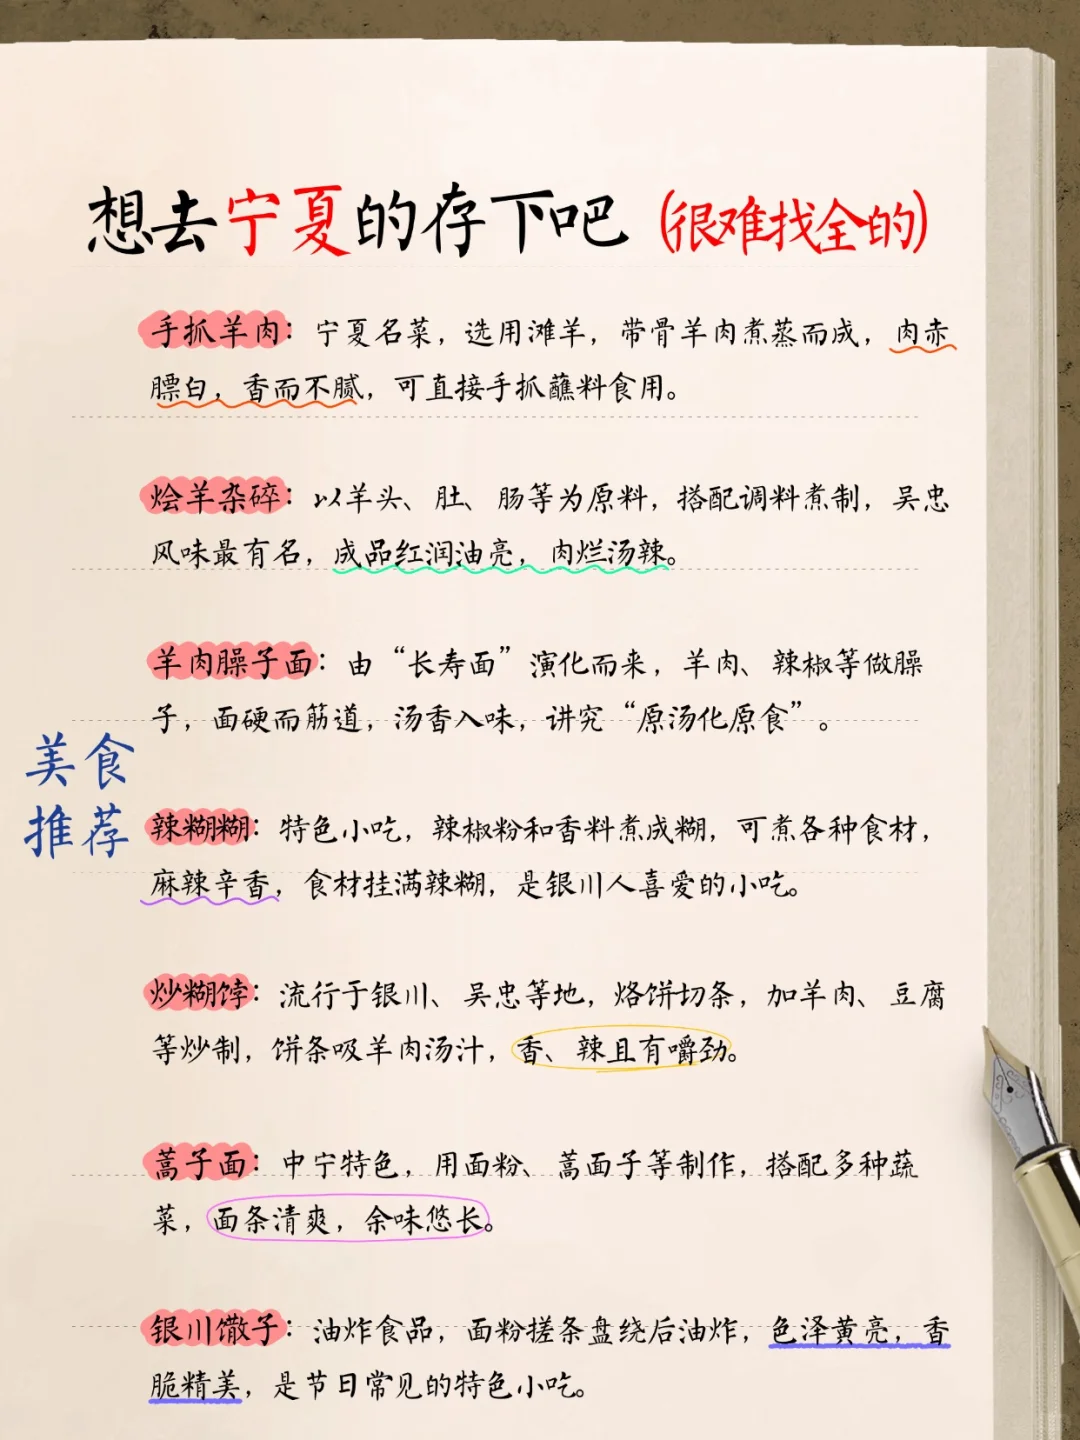 想去宁夏的存下吧（很难找全的）
手抓羊肉：宁夏名菜，选用滩羊，带骨羊肉煮蒸而成，肉赤
膘白，香而不腻，可直接手抓蘸料食用。
烩羊杂碎：以羊头、肚、肠等为原料，搭配调料煮制，吴忠
风味最有名，成品红润油亮，肉烂汤辣。
羊肉臊子面：由“长寿面”演化而来，羊肉、辣椒等做臊
子，面硬而筋道，汤香入味，讲究“原汤化原食”。
美食
推荐
辣糊糊：特色小吃，辣椒粉和香料煮成糊，可煮各种食材，
麻辣辛香，食材挂满辣糊，是银川人喜爱的小吃。
炒糊饽：流行于银川、吴忠等地，烙饼切条，加羊肉、豆腐
等炒制，饼条吸羊肉汤汁，香、辣且有嚼劲。
蒿子面：中宁特色，用面粉、蒿面子等制作，搭配多种蔬
菜，面条清爽，余味悠长。
银川馓子：油炸食品，面粉搓条盘绕后油炸，色泽黄亮，香
脆精美，是节日常见的特色小吃。